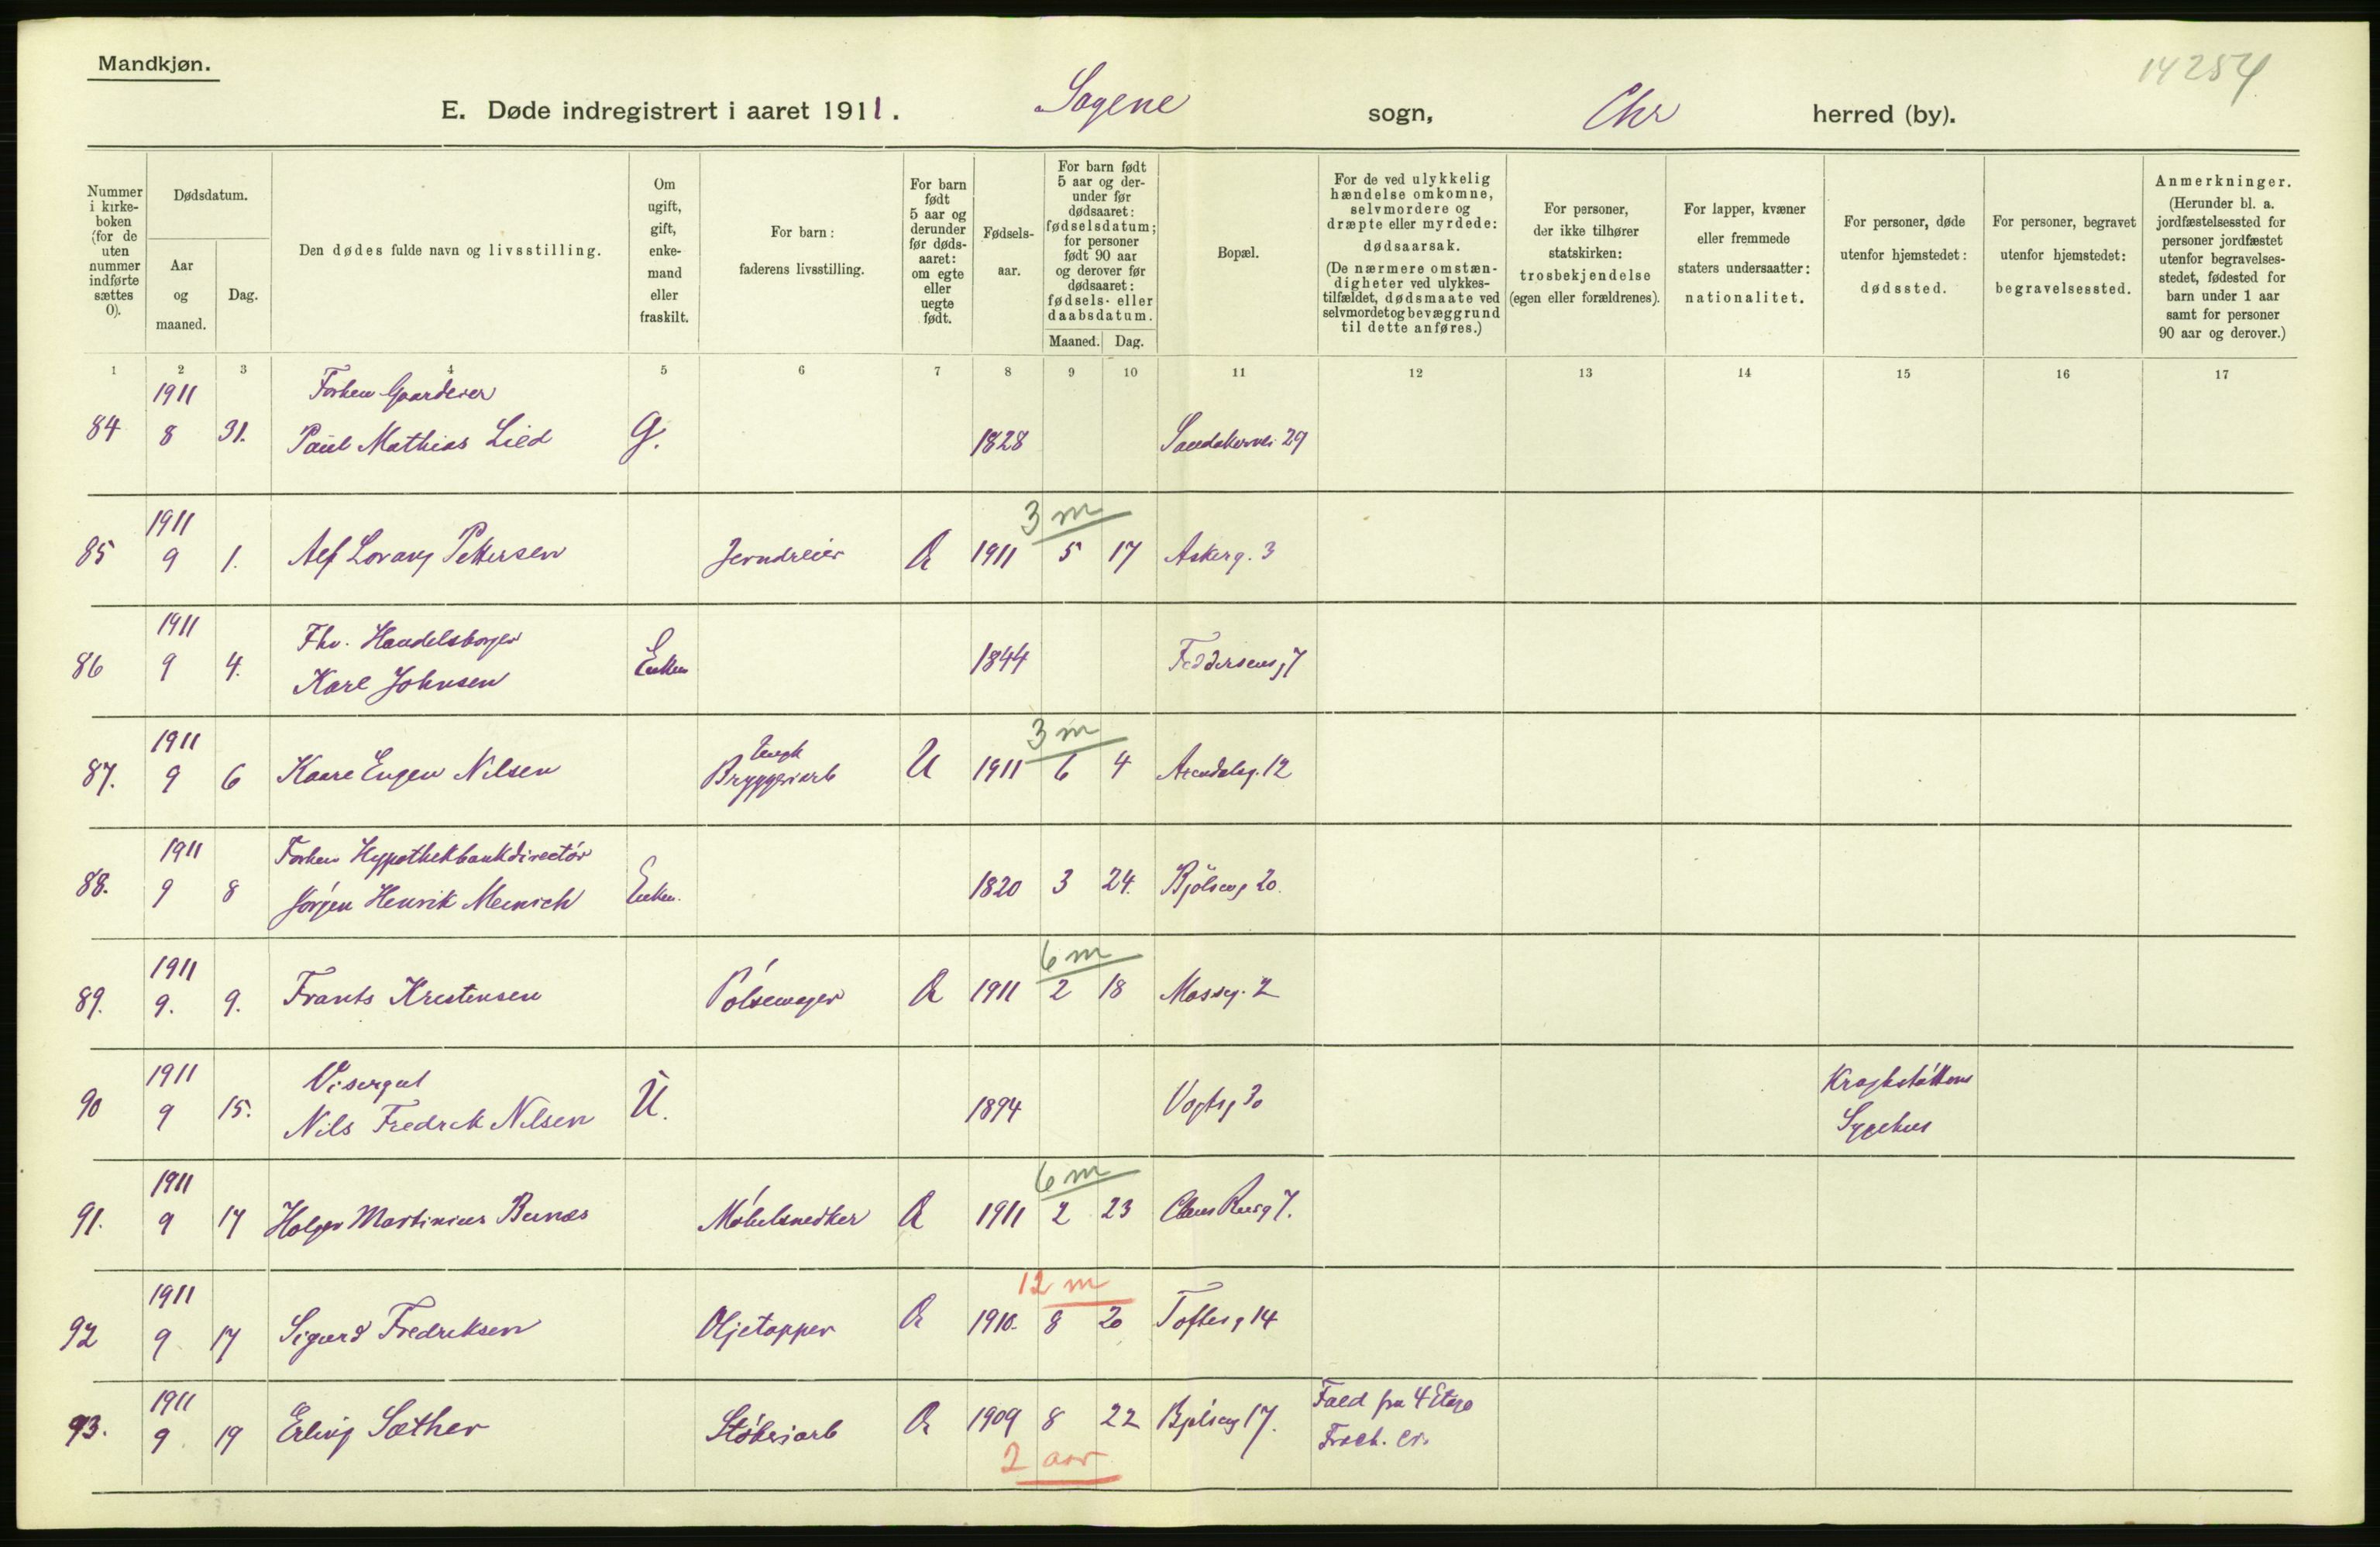 Mandkjøn.
14254
E. Døde indregistrert i aaret 1911. Sagene sogn, Chr herred (by).
Nummer i kirkeboken (for de uten nummer indførte sættes 0).
Dødsdatum.
Aar og maaned.
Dag.
Den dødes fulde navn og livsstilling.
Om ugift, gift, enkemand eller fraskilt.
For barn: faderens livsstilling.
For barn født 5 aar og derunder før dødsaaret: om egte eller uegte født.
Fødselsaar.
For barn født 5 aar og derunder før dødsaaret: fødselsdatum; for personer født 90 aar og derover før dødsaaret: fødsels- eller daabsdatum.
Maaned. Dag.
Bopæl.
For de ved ulykkelig hændelse omkomne, selvmordere og dræpte eller myrdede: dødsaarsak. (De nærmere omstændigheter ved ulykkestilfældet, dødsmaate ved selvmordet og bevæggrund til dette anføres.)
For personer, der ikke tilhører statskirken: trosbekjendelse (egen eller forældrenes).
For lapper, kvæner eller fremmede staters undersaatter: nationalitet.
For personer, døde utenfor hjemstedet: dødssted.
For personer, begravet utenfor hjemstedet: begravelsessted.
Anmerkninger. (Herunder bl. a. jordfæstelsessted for personer jordfæstet utenfor begravelsesstedet, fødested for barn under 1 aar samt for personer 90 aar og derover.)
1 2 3 4 5 6 7 8 9 10 11 12 13 14 15 16 17
1911 Forhen Gaardeier
84 8 31. Paul Mathias Lied G. 1828 Sandakervei 29
1911 3 m
85 9 1. Alf Lorang Pettersen Jerndreier Æ 1911 5 17 Askerg. 3
1911 Fhv. Handelsborger
86 9 4. Karl Johnsen Enkem 1844 Feddersensg 7
1911 3 m
87. 9 6 Kaare Eugen Nilsen Bryggeriarb U 1911 6 4 Arendalsg. 12
1911 Forhen Hypothekbankdirectør
88. 9 8 Jørgen Henrik Meinich Enkem. 1820 3 24. Bjølseng 20.
1911 6 m
89. 9. 9. Frants Kristensen Pølsemager Æ 1911 2 18 Mosseg. 2
1911 Visergut Kroghstøttens
90 9 15. Nils Fredrik Nilsen U. 1894 Vogtsg 30 Sygehus
1911 6 m
91. 9 17 Holger Martinius Bunæs Møbelsnedker Æ 1911 2 23 Claus Riisg 7.
1911 12 m
92 9 17 Sigurd Fredriksen Oljetapper Æ 1910. 8 20 Toftesg 14
1911 Fald fra 4 Etage
93. 9 19 Erling Sæther Støberiarb Æ 1909 8 22 Bjølseng 17.
2 aar